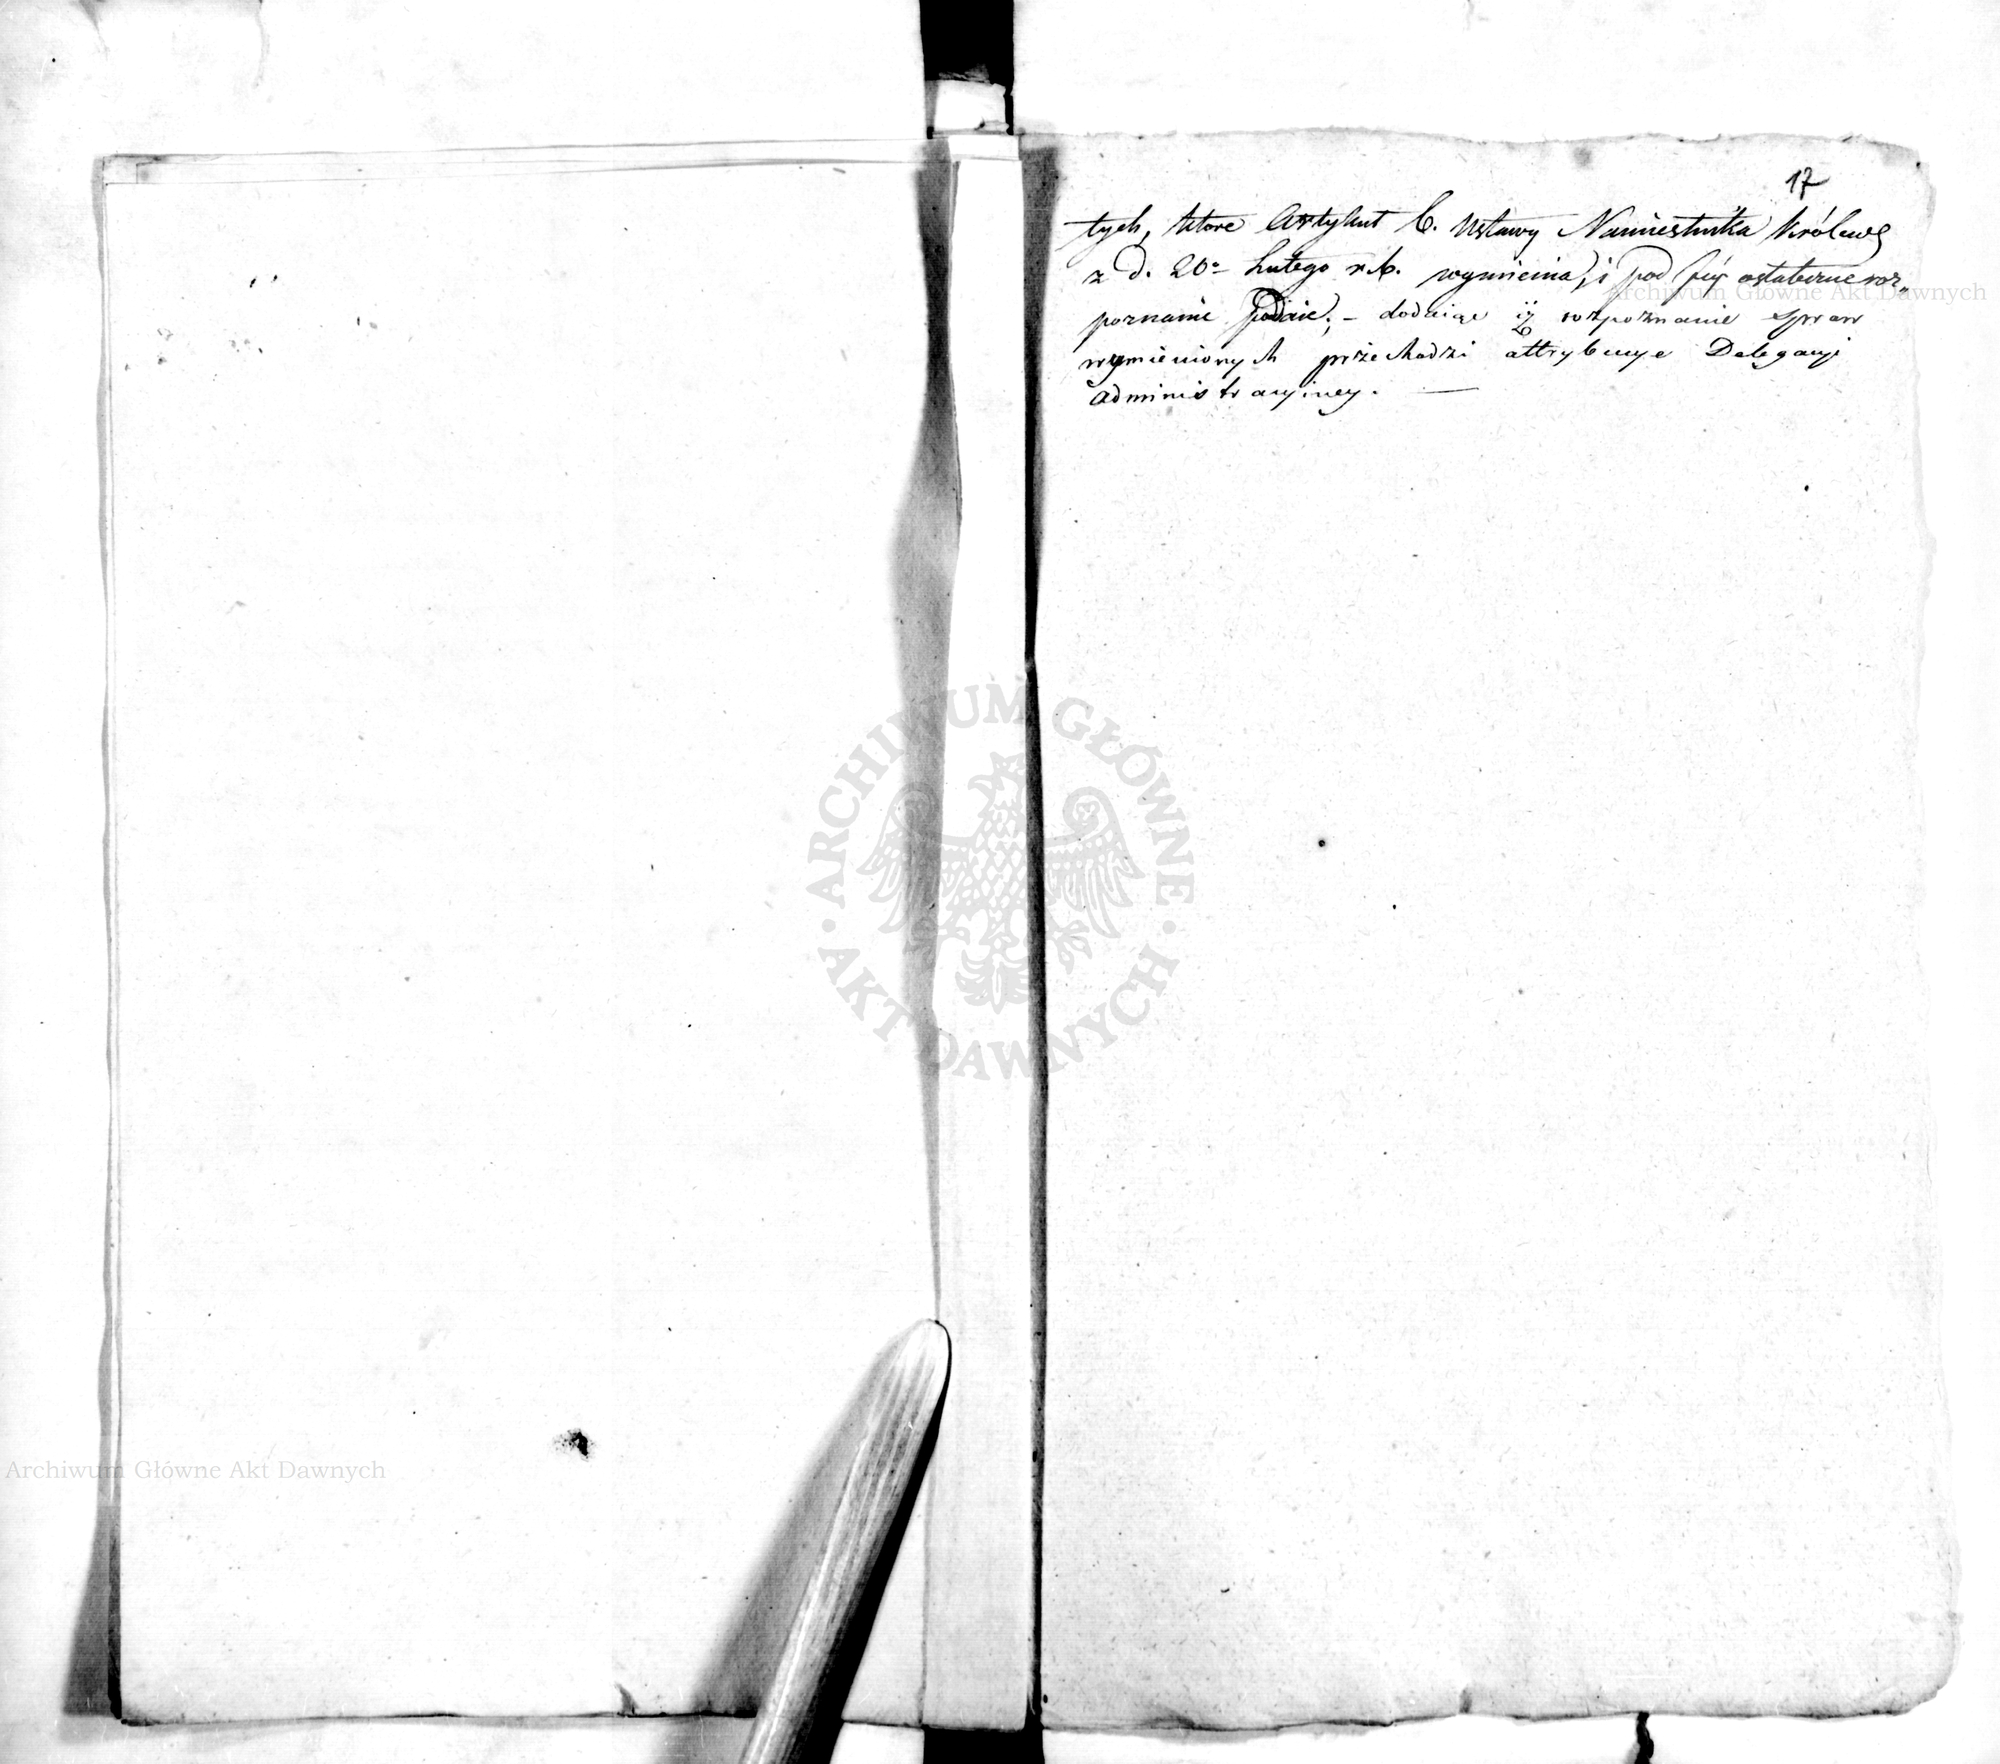 17
tych, ktore Artykuł 6. Ustawy Namiestnika Królews
z d. 20° Lutego r.b. wymienia, i pod Jéy ostateczne roz„
poznanie podaie; – dodaiąc iż rozpoznanie spraw
wymienionych przechodzi attrybucye Delegacyi
administracyiney. —
Archiwum Główne Akt Dawnych
ARCHIWUM GŁÓWNE · AKT DAWNYCH ·
Archiwum Główne Akt Dawnych